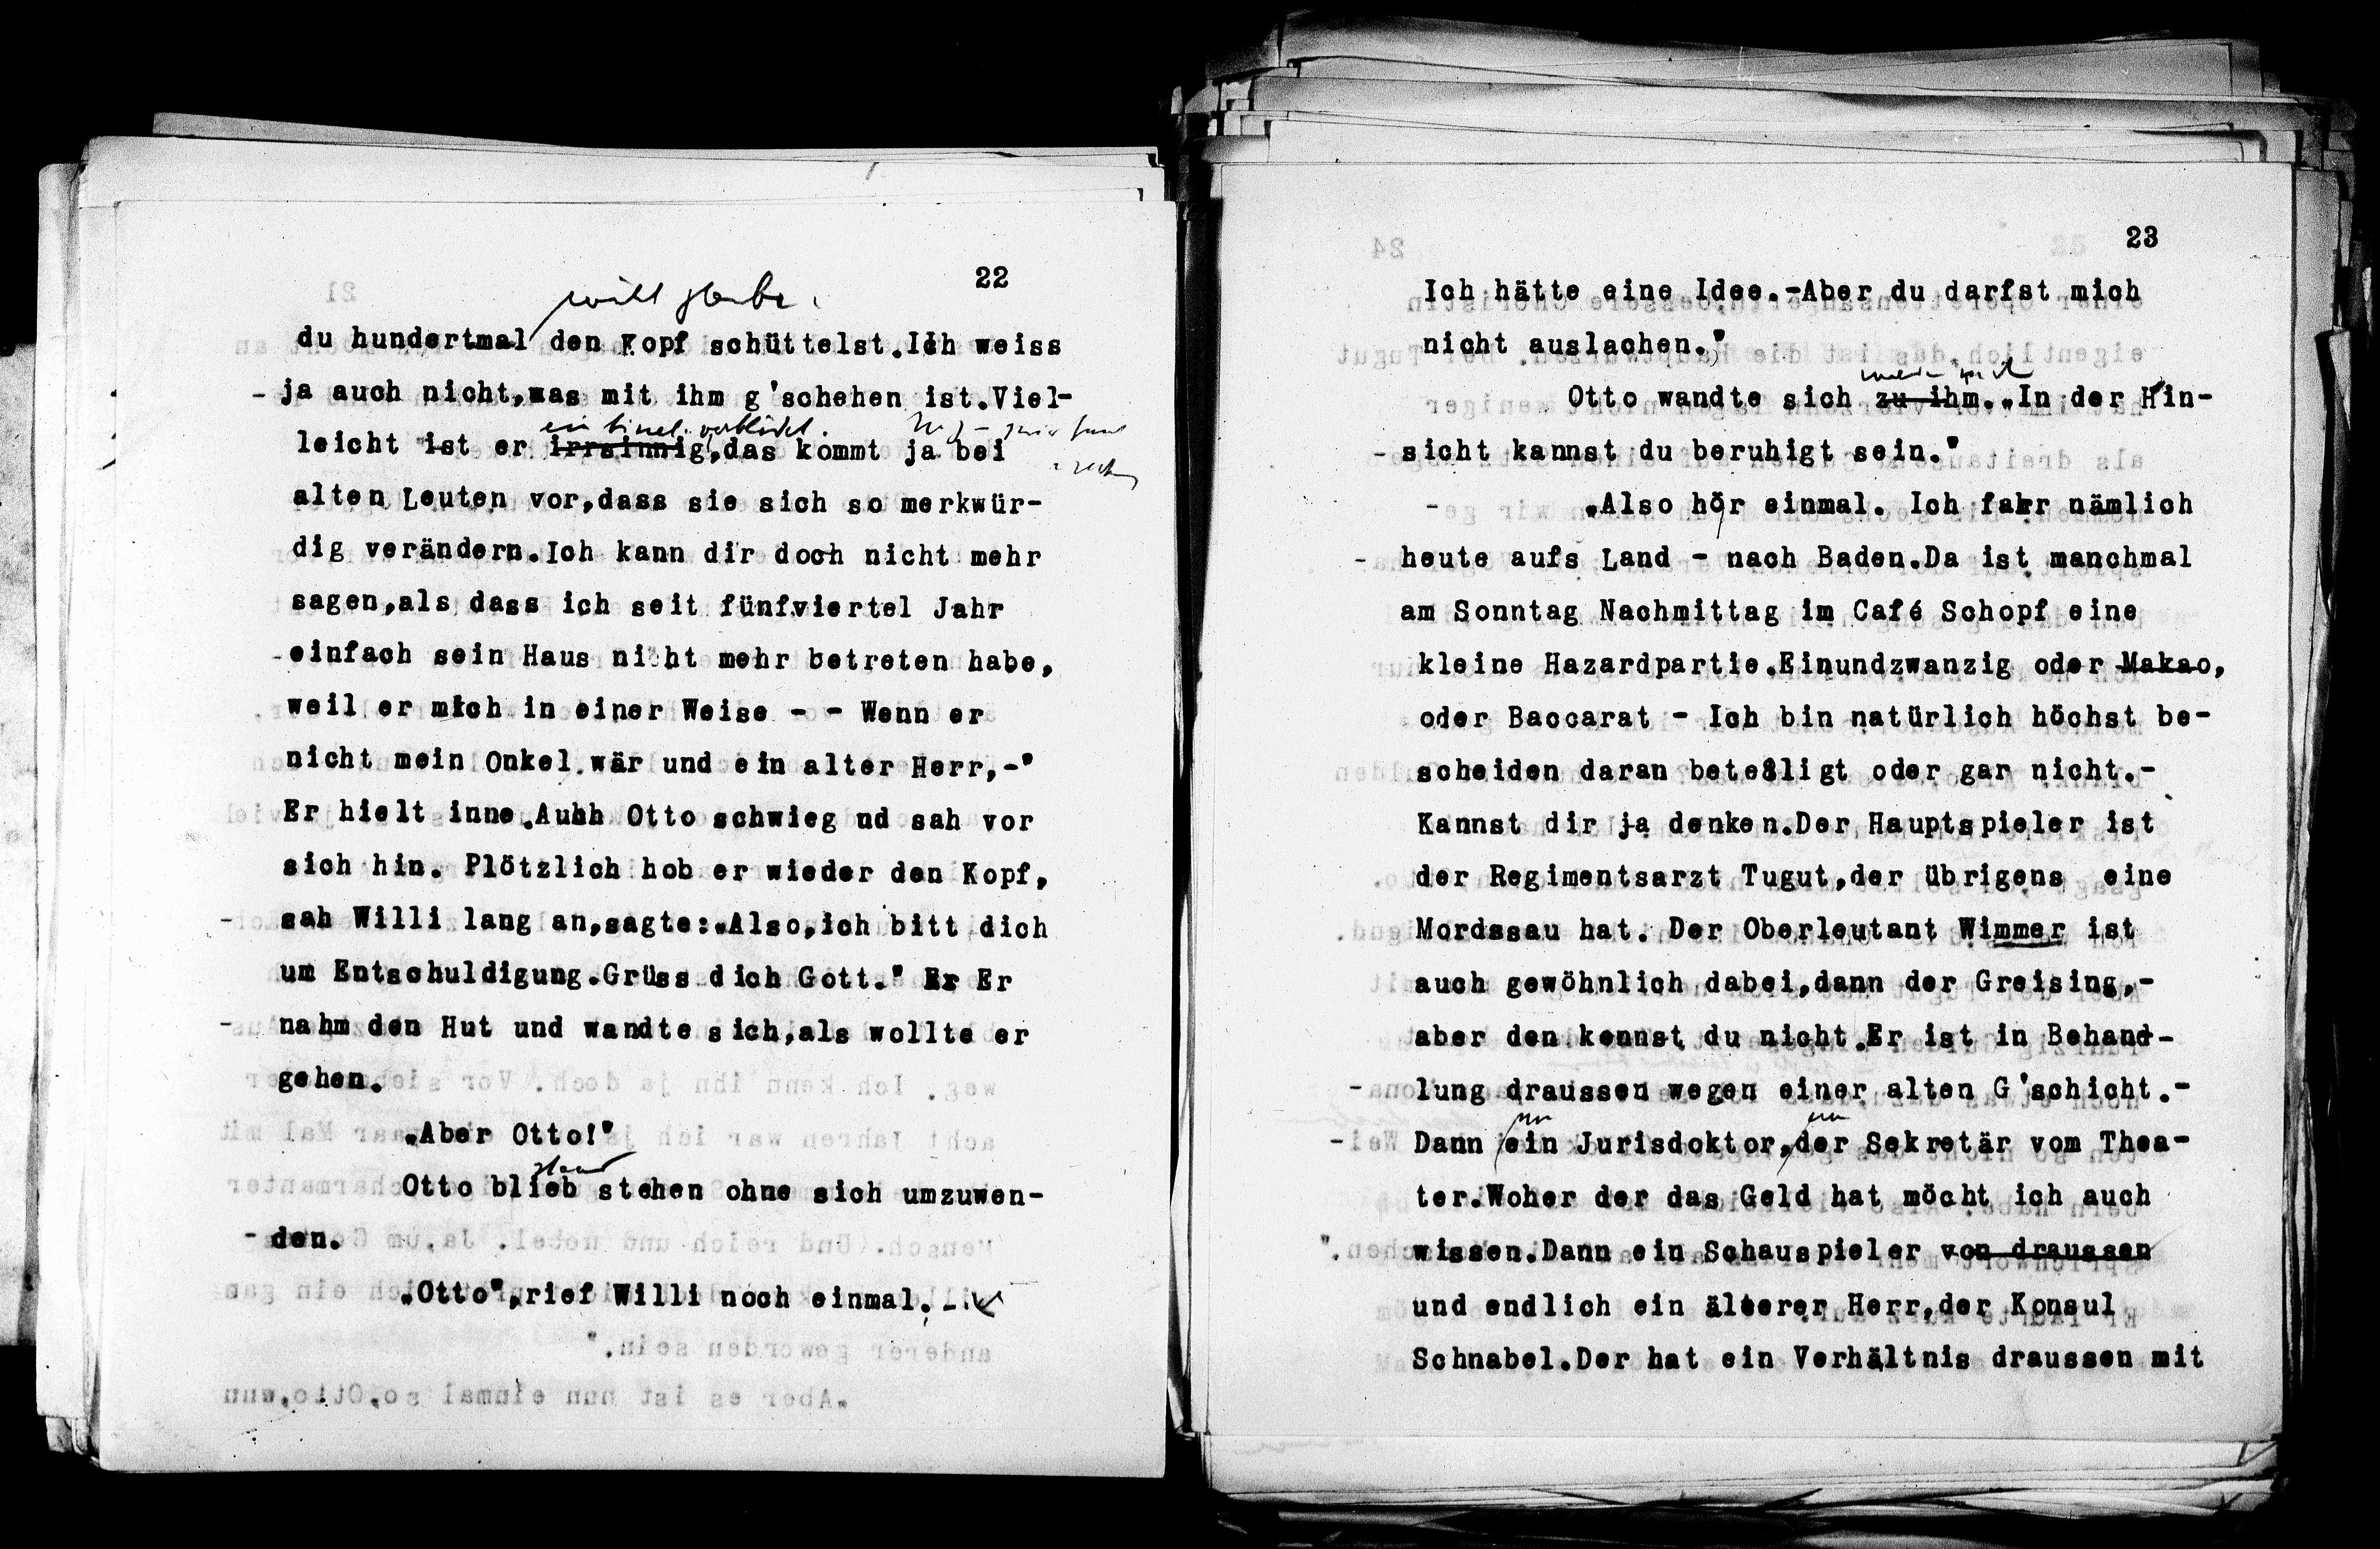 22
du hundertmal den Kopf schüttelst.Ich weiss
- ja auch nicht,was mit ihm g'schehen ist.Viel-
leicht ist er irrsinnig,das kommt ja bei
alten Leuten vor,dass sie sich so merkwür-
dig verändern.Ich kann dir doch nicht mehr
sagen,als dass ich seit fünfviertel Jahr
-einfach sein Haus nicht mehr betreten habe,
weil er mich in einer Weise - - Wenn er
nicht mein Onkel wär und ein alter Herr,-"
Er hielt inne.Auhh Otto schwieg ud sah vor
sich hin. Plötzlich hob er wieder den Kopf,
- sah Willi lang an,sagte:„Also,ich bitt dich
um Entschuldigung.Grüss dich Gott." Er Er
- nahm den Hut und wandte sich,als wollte er
gehen.
„Aber Otto!"
stand
Otto blieb stehen ohne sich umzuwen-
- den.
„Otto",rief Willi noch einmal.-
23
Ich hätte eine Idee.-Aber du darfst mich
nicht auslachen."
Otto wandte sich zu ihm.„In der Hin-
- sicht kannst du beruhigt sein."
- „Also hör einmal. Ich fahr nämlich
- heute aufs Land - nach Baden.Da ist manchmal
am Sonntag Nachmittag im Café Schopf eine
kleine Hazardpartie.Einundzwanzig oder Makao,
oder Baccarat - Ich bin natürlich höchst be-
scheiden daran beteiligt oder gar nicht.-
Kannst dir ja denken.Der Hauptspieler ist
der Regimentsarzt Tugut,der übrigens eine
Mordssau hat. Der Oberleutant Wimmer ist
auch gewöhnlich dabei,dann der Greising,-
aber den kennst du nicht.Er ist in Behand-
- lung draussen wegen einer alten G'schicht.-
- Dann ein Jurisdoktor,der Sekretär vom Thea-
ter.Woher der das Geld hat möcht ich auch
wissen.Dann ein Schauspieler von draussen
und endlich ein älterer Herr,der Konsul
Schnabel.Der hat ein Verhältnis draussen mit